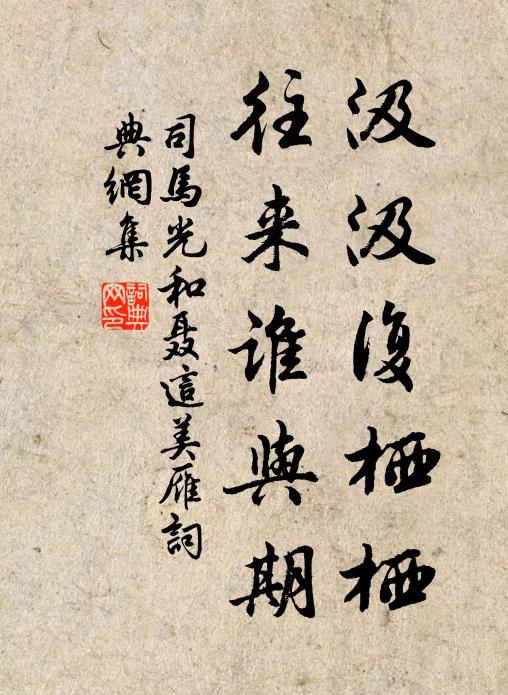 汲汲復栖栖
往来誰與期
司馬光和聂這美雁詞
典網集
詞典
网印